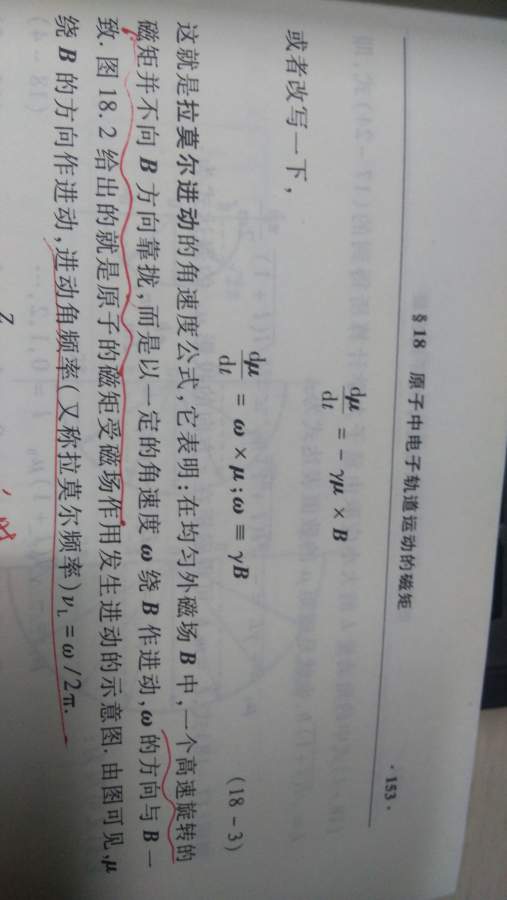 §18 原子中电子轨道运动的磁矩 ·153·
dμ/dt = -γμ × B
或者改写一下，
dμ/dt = ω × μ; ω ≡ γB (18-3)
这就是拉莫尔进动的角速度公式,它表明:在均匀外磁场 B 中,一个高速旋转的
磁矩并不向 B 方向靠拢,而是以一定的角速度 ω 绕 B 作进动,ω 的方向与 B 一
致. 图 18.2 给出的就是原子的磁矩受磁场作用发生进动的示意图. 由图可见,μ
绕 B 的方向作进动,进动角频率(又称拉莫尔频率)ν_L = ω/2π.
z